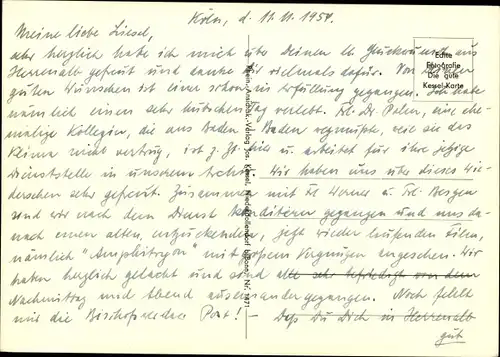 Köln, d. 11.11.1954.
Meine liebe Liesel,
sehr herzlich habe ich mich über Deinen lb. Glückwunsch aus
Herrenalb gefreut und danke Dir vielmals dafür. Von den
guten Wünschen ist einer schon in Erfüllung gegangen. Ich habe
nämlich einen sehr hübschen Tag verlebt. Frl. Dr. Palm, eine ehe-
malige Kollegin, die aus Baden-Baden wegmußte, weil sie das
Klima nicht vertrug, ist z. Zt. hier u. arbeitet für ihre jetzige
Dienststelle in unserem Archiv. Wir haben uns über dieses Wie-
dersehen sehr gefreut. Zusammen mit Frl. Werner u. Frl.
sind wir nach dem Dienst Konditern gegangen und uns da-
nach einen alten, entzückenden, jetzt wieder laufenden Film,
nämlich "Amphitryon" mit großem Vergnügen angesehen. Wir
haben herzlich gelacht und sind alle sehr befriedigt von dem
Nachmittag und Abend auseinander gegangen. Noch fehlt
mir die Post! - Daß Du Dich in Herrenalb
gut
Echte
Fotografie
Die gute
Kessel-Karte
Rhein. Ansichtk. Verlag Jos. Kessel, Niederdollendorf b. Bonn, Nr. 1471